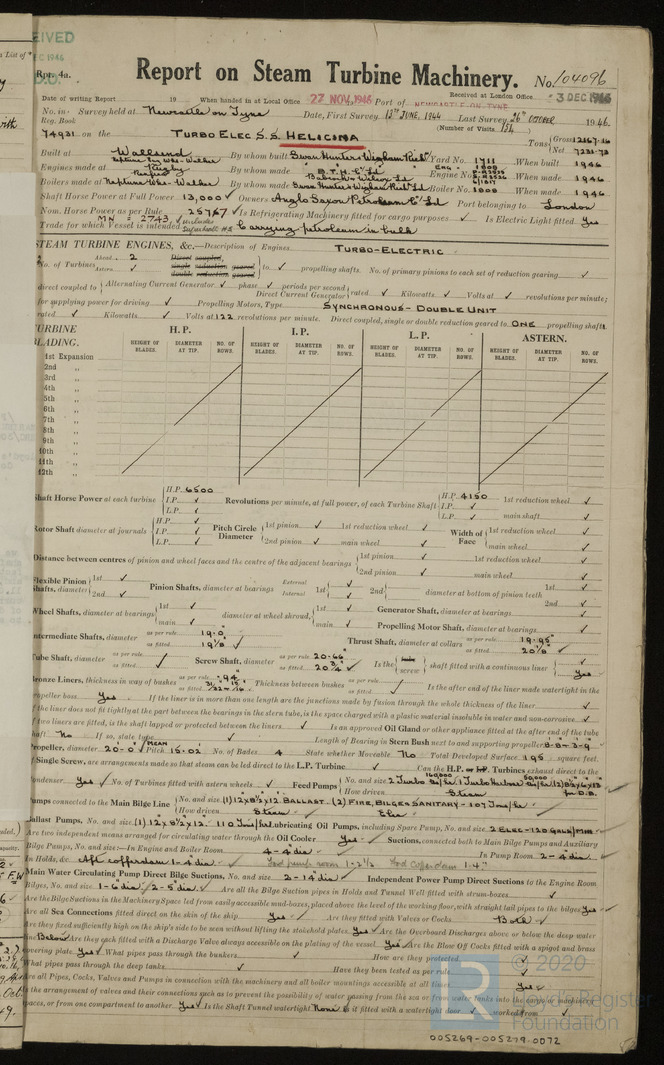 RECEIVED
DEC 1946
Rpt. 4a.
Report on Steam Turbine Machinery. No. 104096
Date of writing Report 19 When handed in at Local Office 27 NOV 1946 Port of NEWCASTLE ON TYNE Received at London Office 3 DEC 1946
No. in Reg. Book Survey held at Newcastle on Tyne Date, First Survey 13TH JUNE, 1944 Last Survey 26th OCTOBER 1946.
(Number of Visits 134)
74931 on the TURBO ELEC S.S. HELICINA Tons Gross 12167.16 Net 7231.73
Built at Wallsend By whom built Swan Hunter & Wigham Rich Ld Yard No. 1711 When built 1946
Engines made at Rugby By whom made B.T.H. Co Ld Engine No. When made 1946
Boilers made at Neptune Wks. Walker By whom made Swan Hunter & Wigham Rich Ld Boiler No. 1808 When made 1946
Shaft Horse Power at Full Power 13,000 Owners Anglo Saxon Petroleum Co Ld Port belonging to London
Nom. Horse Power as per Rule MN = 2743 Is Refrigerating Machinery fitted for cargo purposes ✓ Is Electric Light fitted Yes
Trade for which Vessel is intended Carrying petroleum in bulk
STEAM TURBINE ENGINES, &c.—Description of Engines TURBO-ELECTRIC
No. of Turbines Ahead 2 Astern ✓ Direct coupled, single reduction geared double reduction geared to ✓ propelling shafts. No. of primary pinions to each set of reduction gearing ✓
direct coupled to Alternating Current Generator ✓ phase ✓ periods per second Direct Current Generator rated ✓ Kilowatts ✓ Volts at ✓ revolutions per minute;
for supplying power for driving ✓ Propelling Motors, Type SYNCHRONOUS - DOUBLE UNIT
rated ✓ Kilowatts ✓ Volts at 122 revolutions per minute. Direct coupled, single or double reduction geared to ONE propelling shaft.
TURBINE BLADING. H.P. I.P. L.P. ASTERN.
HEIGHT OF BLADES. DIAMETER AT TIP. NO. OF ROWS. HEIGHT OF BLADES. DIAMETER AT TIP. NO. OF ROWS. HEIGHT OF BLADES. DIAMETER AT TIP. NO. OF ROWS. HEIGHT OF BLADES. DIAMETER AT TIP. NO. OF ROWS.
1st Expansion
2nd "
3rd "
4th "
5th "
6th "
7th "
8th "
9th "
10th "
11th "
12th "
Shaft Horse Power at each turbine H.P. 6500 I.P. ✓ L.P. ✓ Revolutions per minute, at full power, of each Turbine Shaft H.P. 4150 I.P. ✓ L.P. ✓ 1st reduction wheel ✓ main shaft ✓
Rotor Shaft diameter at journals H.P. ✓ I.P. ✓ L.P. ✓ Pitch Circle Diameter 1st pinion ✓ 1st reduction wheel ✓ 2nd pinion ✓ main wheel ✓ Width of Face 1st reduction wheel ✓ main wheel ✓
Distance between centres of pinion and wheel faces and the centre of the adjacent bearings 1st pinion ✓ 2nd pinion ✓ 1st reduction wheel ✓ main wheel ✓
Flexible Pinion Shafts, diameter 1st ✓ 2nd ✓ Pinion Shafts, diameter at bearings External Internal 1st ✓ 2nd diameter at bottom of pinion teeth 1st ✓ 2nd ✓
Wheel Shafts, diameter at bearings 1st ✓ main ✓ diameter at wheel shroud, 1st ✓ main ✓ Generator Shaft, diameter at bearings ✓ Propelling Motor Shaft, diameter at bearings ✓
Intermediate Shafts, diameter as per rule 19.0 as fitted 19 1/8 ✓ Thrust Shaft, diameter at collars as per rule 19.95 as fitted 20 1/8 ✓
Tube Shaft, diameter as per rule as fitted ✓ Screw Shaft, diameter as per rule 20.66 as fitted 20 3/4 ✓ Is the tube screw shaft fitted with a continuous liner Yes
Bronze Liners, thickness in way of bushes as per rule .94 as fitted Thickness between bushes as per rule as fitted ✓ Is the after end of the liner made watertight in the
propeller boss Yes If the liner is in more than one length are the junctions made by fusion through the whole thickness of the liner ✓
If the liner does not fit tightly at the part between the bearings in the stern tube, is the space charged with a plastic material insoluble in water and non-corrosive ✓
If two liners are fitted, is the shaft lapped or protected between the liners ✓ Is an approved Oil Gland or other appliance fitted at the after end of the tube
shaft No If so, state type ✓ Length of Bearing in Stern Bush next to and supporting propeller
Propeller, diameter 20-0 Pitch MEAN 15.02 No. of Blades 4 State whether Moveable No Total Developed Surface 195 square feet.
If Single Screw, are arrangements made so that steam can be led direct to the L.P. Turbine ✓ Can the H.P. or I.P. Turbines exhaust direct to the
Condenser Yes No. of Turbines fitted with astern wheels ✓ Feed Pumps No. and size How driven Steam
Pumps connected to the Main Bilge Line No. and size (1) 12 x 8½ x 12 BALLAST. (2) FIRE, BILGE & SANITARY - 107 Tons/hr How driven Steam Elec
Ballast Pumps, No. and size (1) 12 x 8½ x 12. 110 Tons/hr Lubricating Oil Pumps, including Spare Pump, No. and size 2 ELEC - 120 GALS/MIN
Are two independent means arranged for circulating water through the Oil Cooler Yes Suctions, connected both to Main Bilge Pumps and Auxiliary
Bilge Pumps, No. and size:—In Engine and Boiler Room 4 - 4 dia In Pump Room 2 - 4 dia
In Holds, &c. Aft cofferdam 1 - 4 dia Fwd pump room 1 - 2½ Fwd Cofferdam 1 - 4"
Main Water Circulating Pump Direct Bilge Suctions, No. and size 2 - 14 dia Independent Power Pump Direct Suctions to the Engine Room
Bilges, No. and size 1 - 6 dia, 2 - 5 dia Are all the Bilge Suction pipes in Holds and Tunnel Well fitted with strum-boxes ✓
Are the Bilge Suctions in the Machinery Space led from easily accessible mud-boxes, placed above the level of the working floor, with straight tail pipes to the bilges Yes
Are all Sea Connections fitted direct on the skin of the ship Yes Are they fitted with Valves or Cocks Both
Are they fixed sufficiently high on the ship's side to be seen without lifting the stokehold plates Yes Are the Overboard Discharges above or below the deep water
line Below Are they each fitted with a Discharge Valve always accessible on the plating of the vessel Yes Are the Blow Off Cocks fitted with a spigot and brass
covering plate Yes What pipes pass through the bunkers ✓ How are they protected ✓
What pipes pass through the deep tanks ✓ Have they been tested as per rule ✓
Are all Pipes, Cocks, Valves and Pumps in connection with the machinery and all boiler mountings accessible at all times Yes
Is the arrangement of valves and their connections such as to prevent the possibility of water passing from the sea or from water tanks into the cargo or machinery
spaces, or from one compartment to another Yes Is the Shaft Tunnel watertight None Is it fitted with a watertight door ✓ worked from ✓
© 2020
Lloyd's Register
Foundation
005269-005279-0072